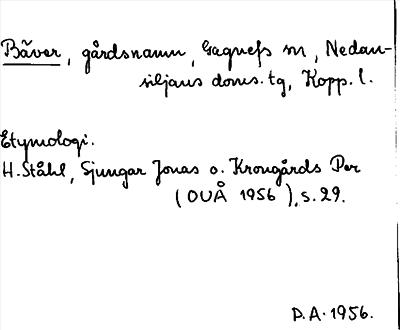 Bäver, gårdsnamn, Gagnefs sn, Nedan-
siljans doms. tg, Kopp. l.
Etymologi.
H. Ståhl, Sjungar Jonas o. Krongårds Per
(OUÅ 1956), s. 29.
D.A. 1956.